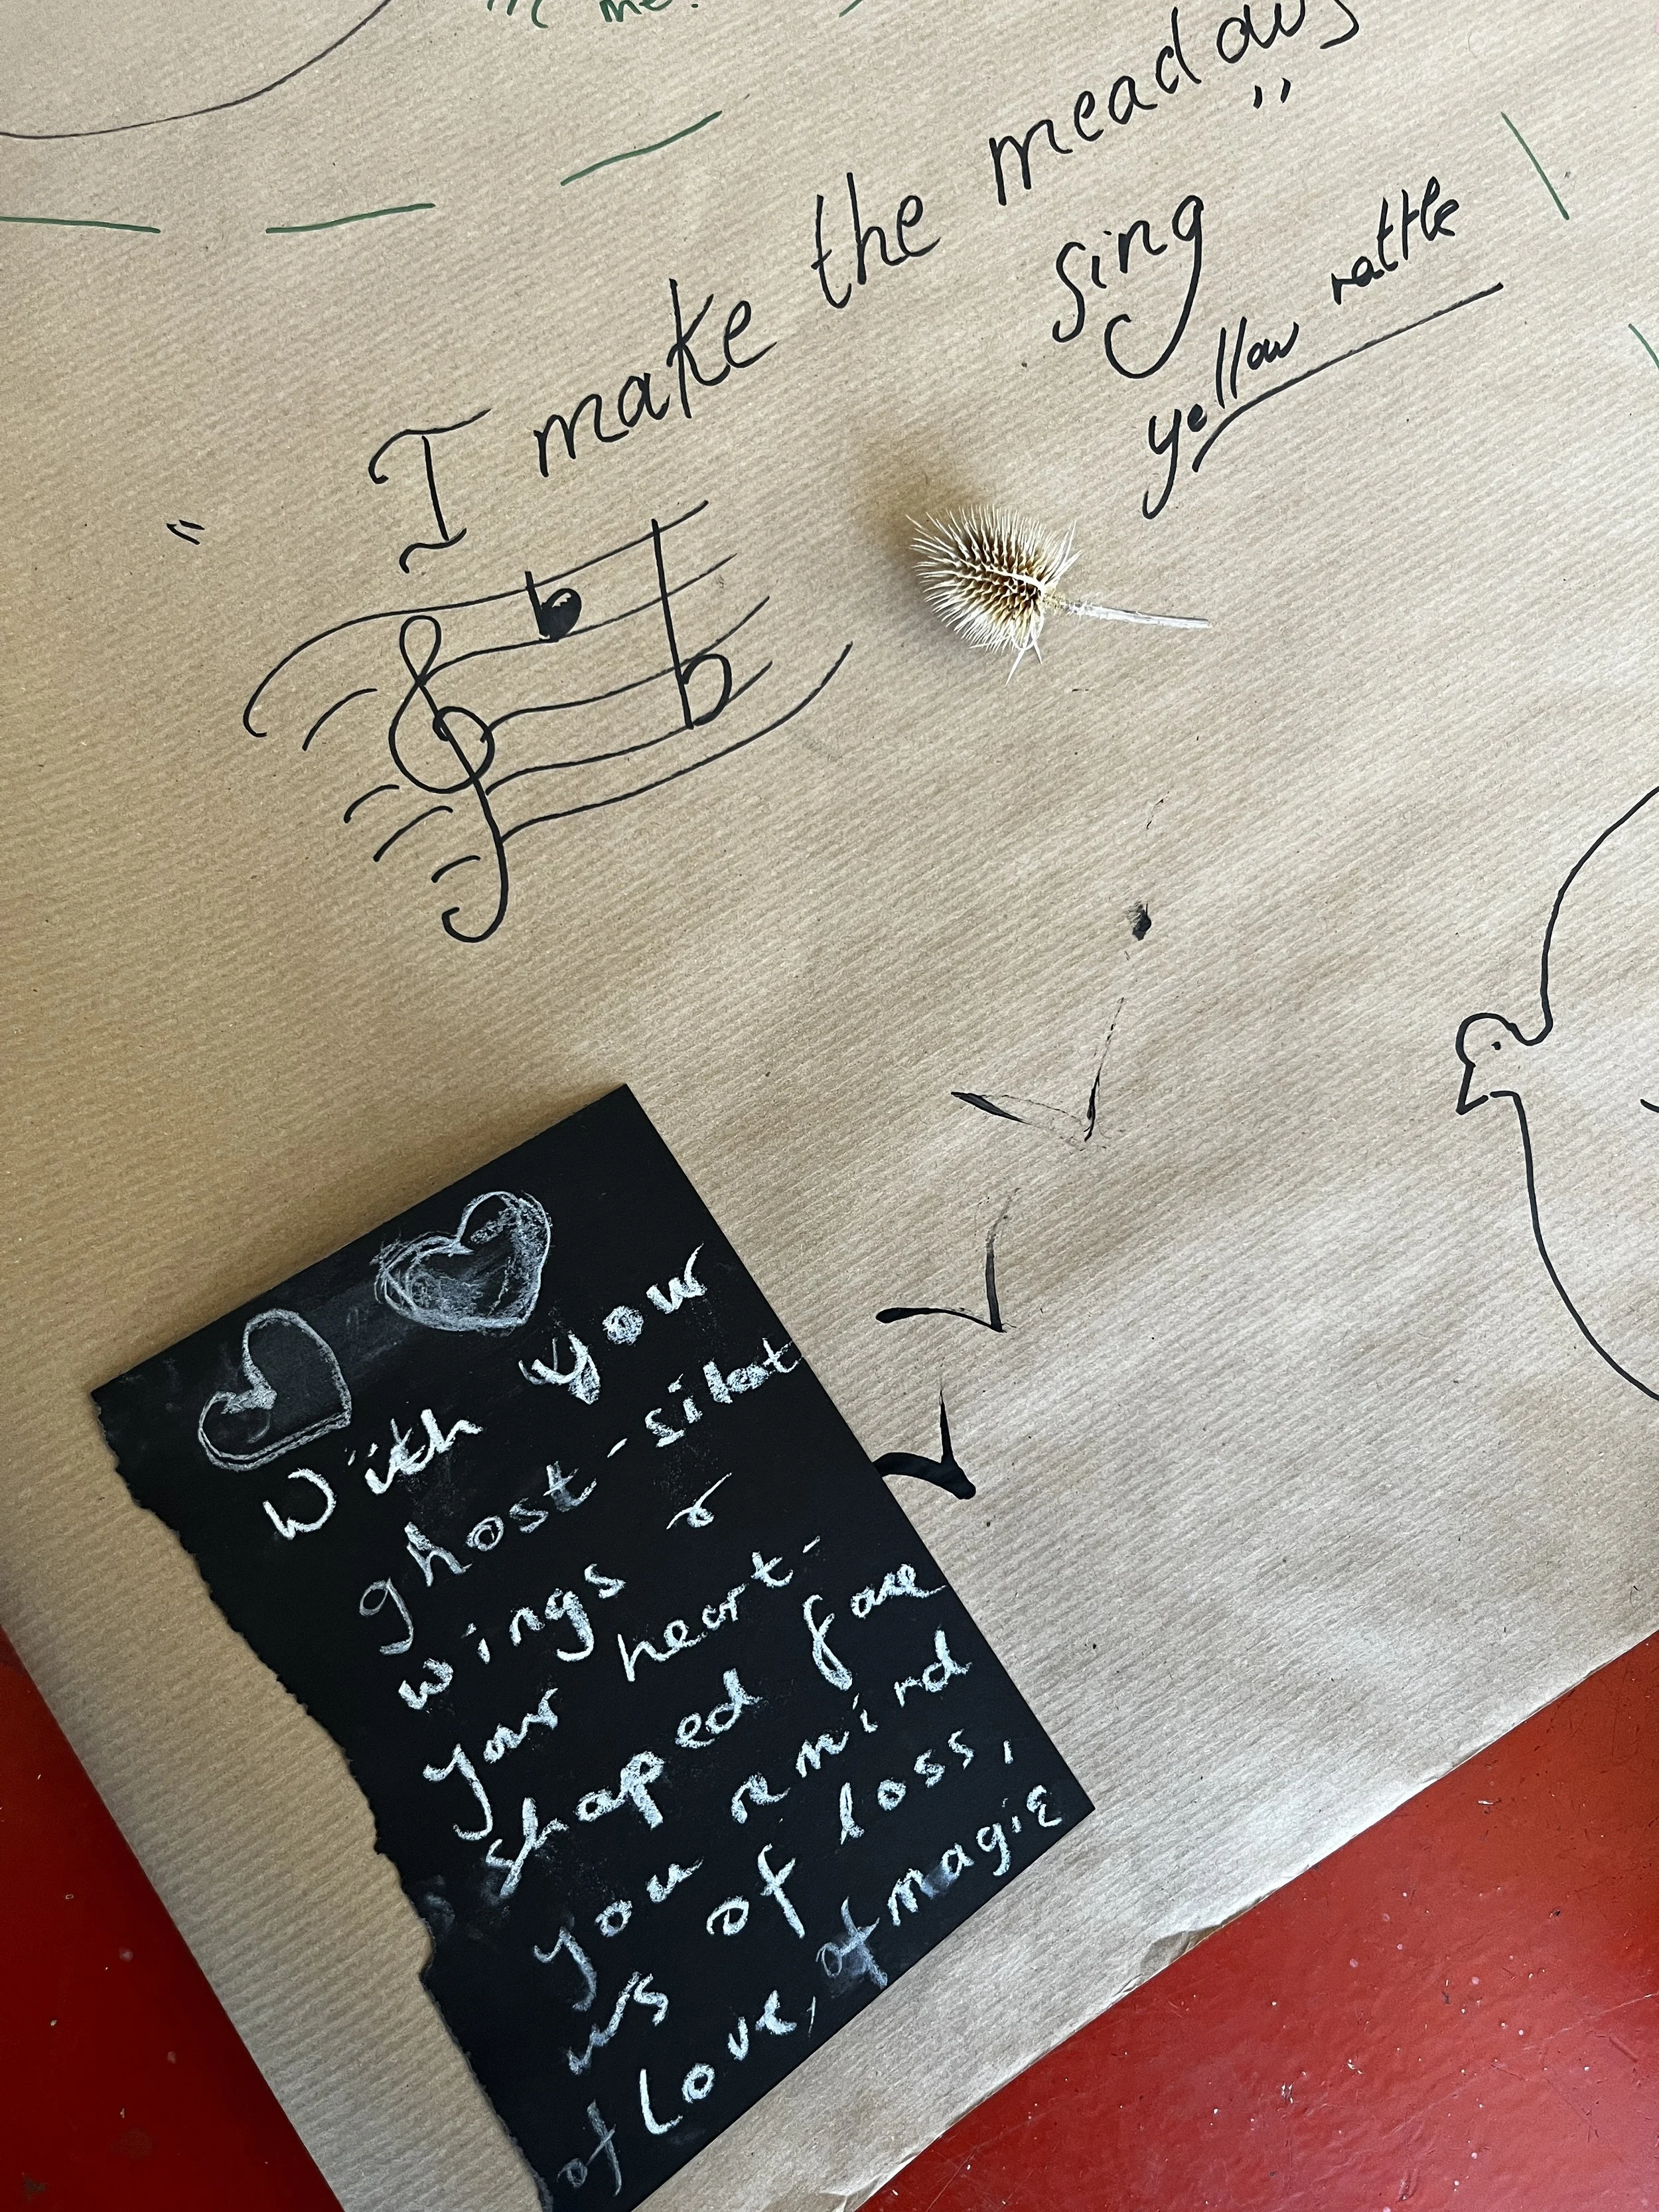 me!
"I make the meadows"
sing
yellow rattle
With your
ghost-silent
wings &
your heart-
shaped face
you remind
us of loss,
of Love, of magic